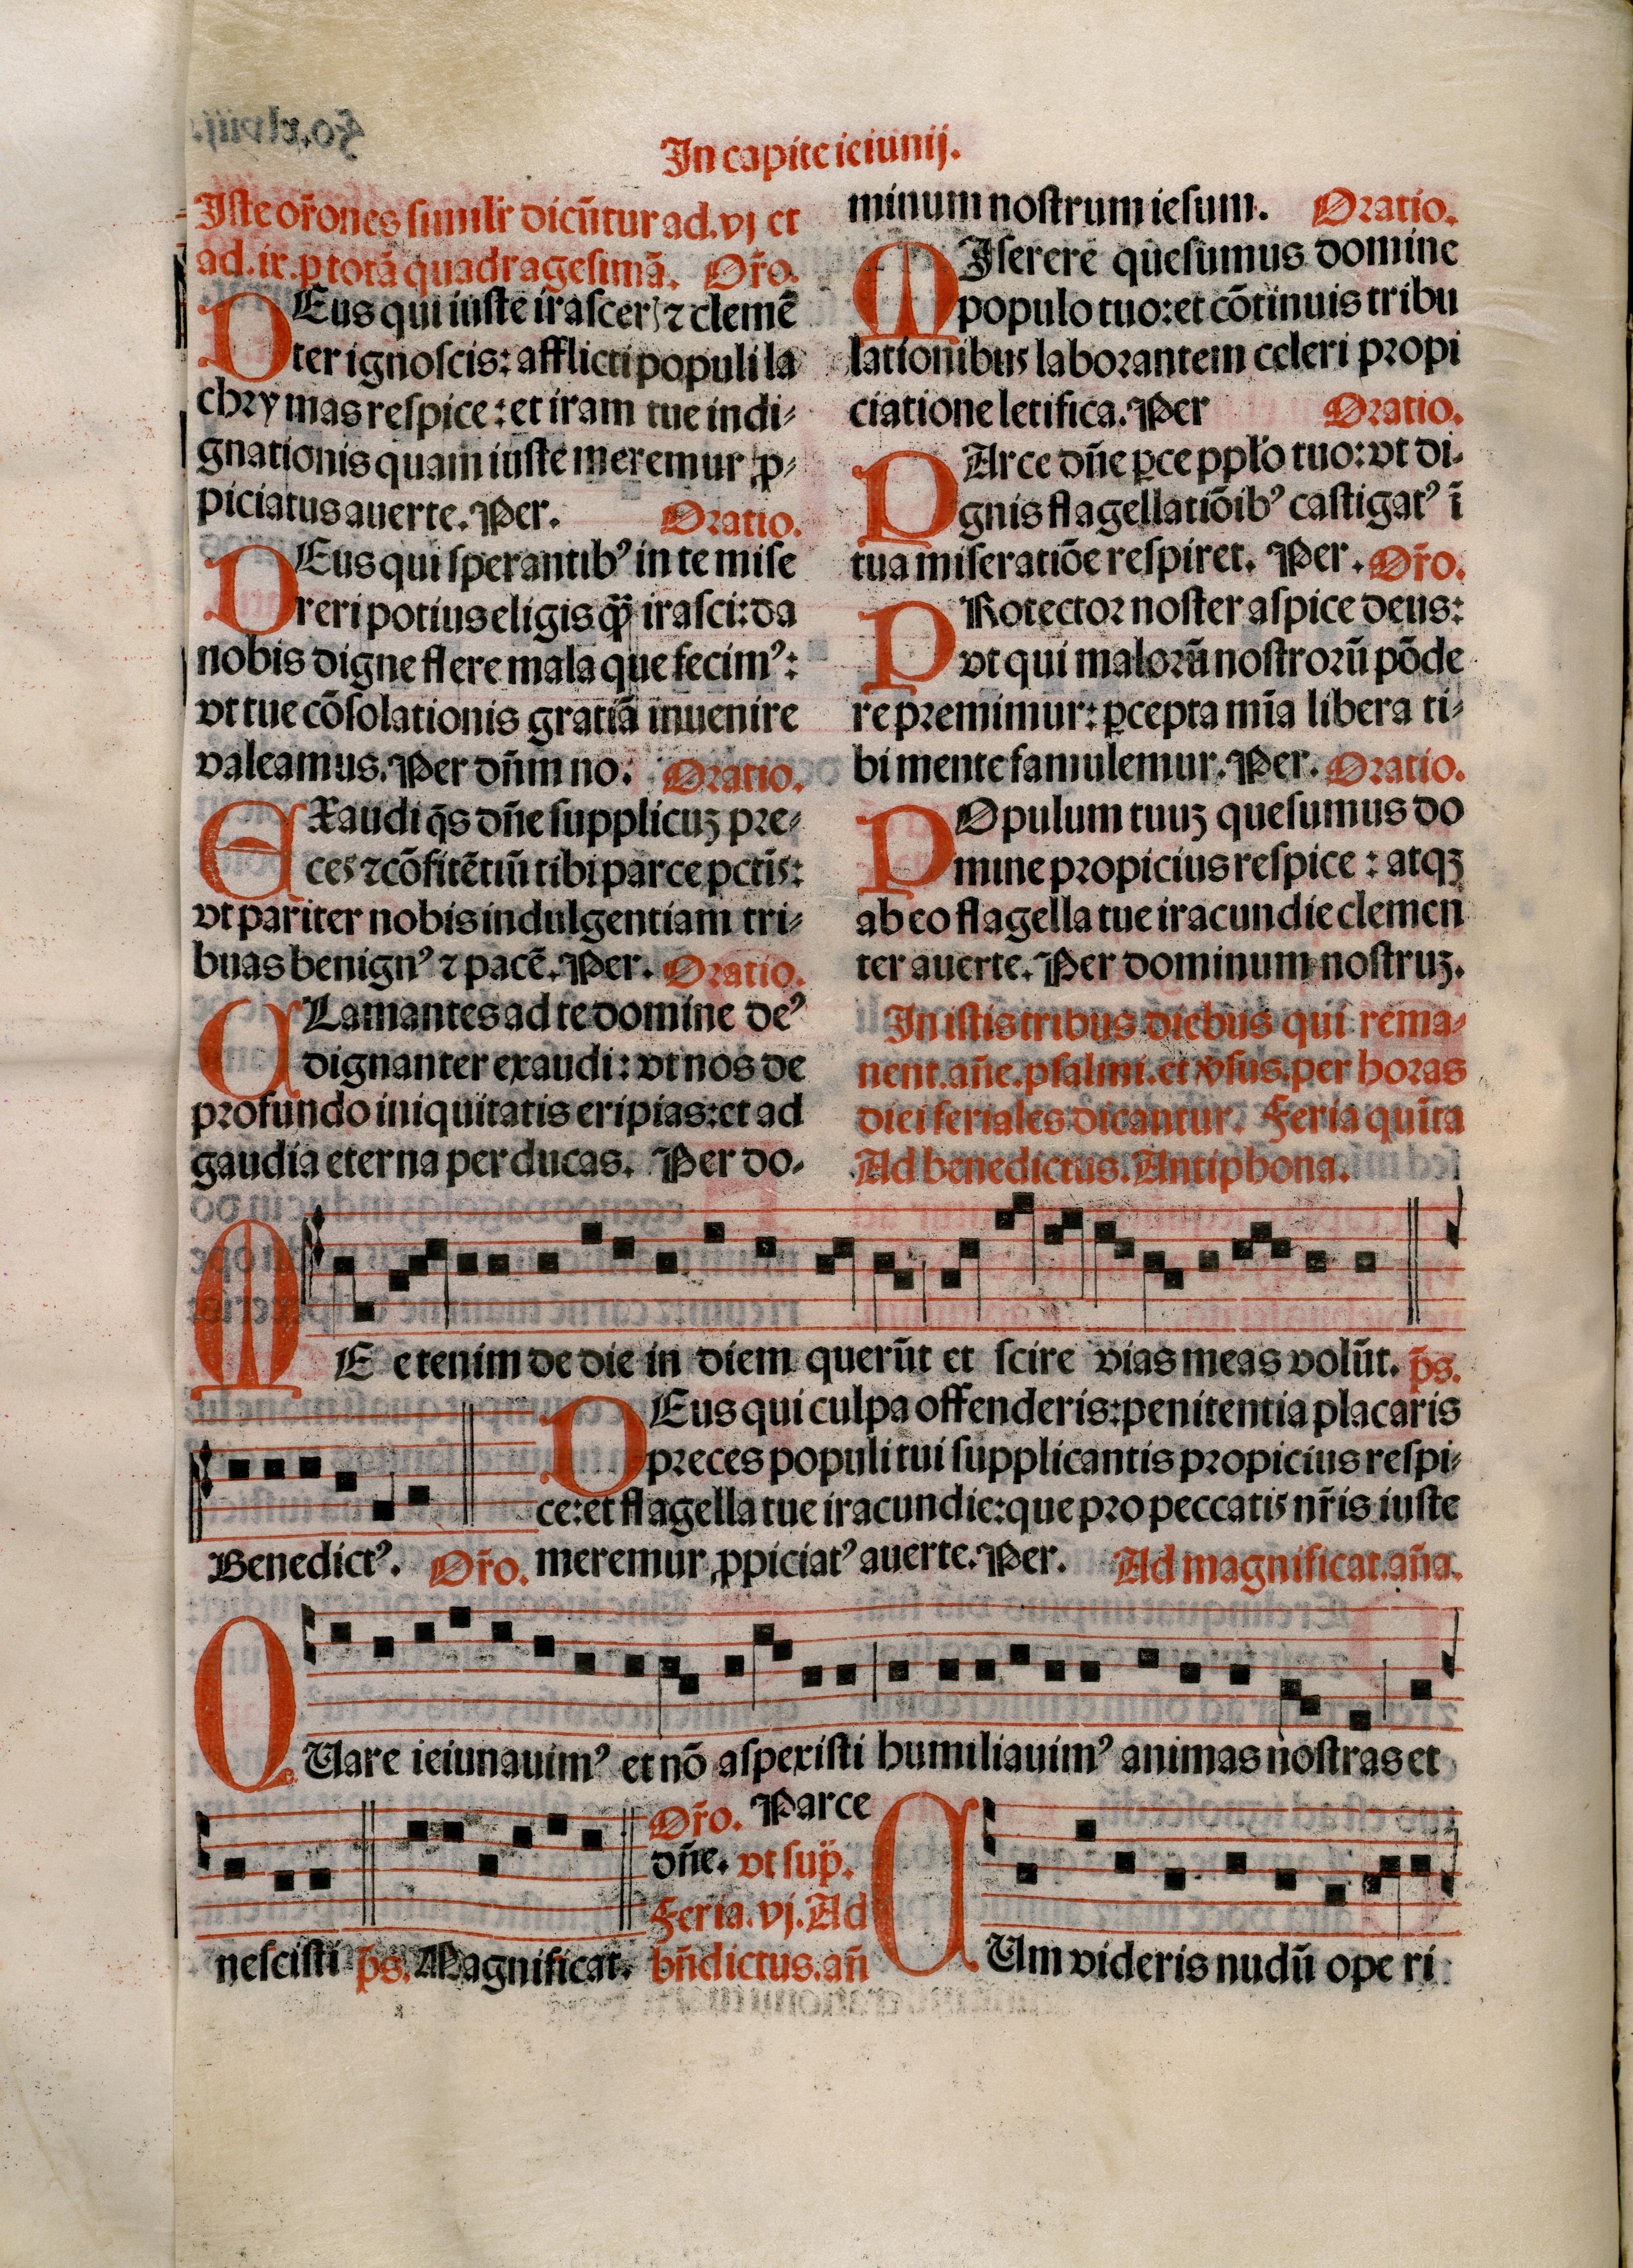 In capite ieiunij.
Iste or̃ones simil'r dicũtur ad .vj et
ad .ix. ꝑ totã quadragesimã. Or̃o.
DEus qui iuste irasceris ⁊ clemẽ
ter ignoscis: afflicti populi la
chrymas respice: et iram tue indi⸗
gnationis quam iuste meremur ꝓ⸗
piciatus auerte. Per. Oratio.
DEus qui sperantibꝰ in te mise
reri potius eligis q̃ꝫ irasci: da
nobis digne flere mala que fecimꝰ:
vt tue cõsolationis gratiã inuenire
valeamus. Per dñm no. Oratio.
EXaudi q̃s dñe supplicuꝫ pre⸗
ces ⁊ cõfitẽtiũ tibi parce pctĩs:
vt pariter nobis indulgentiam tri⸗
buas benignꝰ ⁊ pacẽ. Per. Oratio.
CLamantes ad te domine deꝰ
dignanter exaudi: vt nos de
profundo iniquitatis eripias: et ad
gaudia eterna perducas. Per do⸗
minum nostrum iesum. Oratio.
MIserere quesumus domine
populo tuo: et cõtinuis tribu
lationibus laborantem celeri propi
ciatione letifica. Per Oratio.
PArce dñe ꝑce ppl'o tuo: vt di⸗
gnis flagellatiõibꝰ castigatꝰ ĩ
tua miseratiõe respiret. Per. Or̃o.
PRotector noster aspice deus:
vt qui malorũ nostrorũ põde
re premimur: ꝑcepta mĩa libera ti⸗
bi mente famulemur. Per. Oratio.
POpulum tuuꝫ quesumus do
mine propicius respice: atqꝫ
ab eo flagella tue iracundie clemen
ter auerte. Per dominum nostruꝫ.
In istis tribus diebus qui rema⸗
nent. añe. psalmi. et v̉sus. per horas
diei feriales dicantur. Feria quĩta
Ad benedictus. Antiphona.
ME etenim de die in diem querũt et scire vias meas volũt. p̃s.
Benedictꝰ. Or̃o.
DEus qui culpa offenderis: penitentia placaris
preces populi tui supplicantis propicius respi⸗
ce: et flagella tue iracundie: que pro peccatis nr̃is iuste
meremur ꝓpiciatꝰ auerte. Per. Ad magnificat. aña.
QUare ieiunauimꝰ et nõ aspexisti humiliauimꝰ animas nostras et
nescisti p̃s. Magnificat.
Or̃o. Parce
dñe. vt sup̃.
Feria. vj. Ad
bñdictus. añ
CUm videris nudũ ope ri
fo. xlviij.